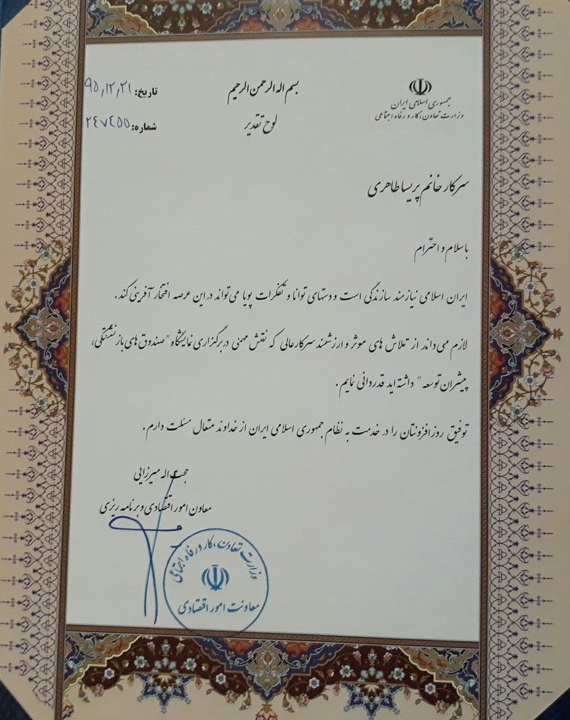 بسم اله الرحمن الرحیم
لوح تقدیر
جمهوری اسلامی ایران
وزارت تعاون، کار و رفاه اجتماعی
تاریخ: ۹۵,۱۲,۲۱
شماره: ۲۴۷۲۵۵
سرکار خانم پریسا طاهری
باسلام و احترام
ایران اسلامی نیازمند سازندگی است و دستهای توانا و تفکرات پویا می‌تواند در این عرصه افتخار آفرینی کند.
لازم می‌داند از تلاش های موثر و ارزشمند سرکارعالی که نقش مهمی در برگزاری نمایشگاه "صندوق های بازنشستگی،
پیشران توسعه" داشته اید قدردانی نمایم.
توفیق روز افزونتان را در خدمت به نظام جمهوری اسلامی ایران از خداوند متعال مسئلت دارم.
حجت اله میرزایی
معاون امور اقتصادی و برنامه ریزی
وزارت تعاون، کار و رفاه اجتماعی
معاونت امور اقتصادی